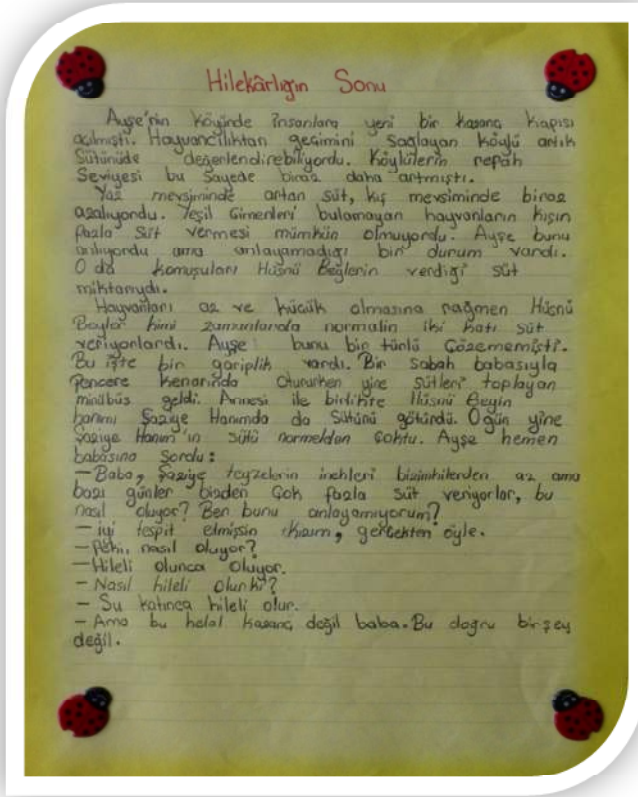 Hilekârlığın Sonu
Ayşe'nin köyünde insanlara yeni bir kazanç kapısı
açılmıştı. Hayvancılıktan geçimini sağlayan köylü artık
Sütünüde değerlendirebiliyordu. Köylülerin refah
Seviyesi bu sayede biraz daha artmıştı.
Yaz mevsiminde artan süt, kış mevsiminde biraz
azalıyordu. Yeşil Çimenleri bulamayan hayvanların kışın
fazla süt vermesi mümkün olmuyordu. Ayşe bunu
anlıyordu ama anlayamadığı bir durum vardı.
O da komuşuları Hüsnü Beylerin verdiği süt
miktarıydı.
Hayvanları az ve küçük olmasına rağmen Hüsnü
Beyler kimi zamanlarda normalin iki katı süt
veriyorlardı. Ayşe bunu bir türlü Çözememişti.
Bu işte bir gariplik vardı. Bir sabah babasıyla
Pencere kenarında otururken yine sütleri toplayan
minübüs geldi. Annesi ile birlikte Hüsnü Beyin
hanımı Şaziye Hanımda da Sütünü götürdü. Ogün yine
Şaziye Hanım'ın sütü normelden Çoktu. Ayşe hemen
babasına Sordu:
— Baba, Şaziye teyzelerin inekleri bizimkilerden az ama
bazı günler bizden Çok fazla süt veriyorlar, bu
nasıl oluyor? Ben bunu anlayamıyorum?
— iyi tespit etmişsin kızım, gerçekten öyle.
— Peki, nasıl oluyor?
— Hileli olunca oluyor.
— Nasıl hileli olur ki?
— Su katınca hileli olur.
— Ama bu helal kazanç değil baba. Bu doğru birşey
değil.